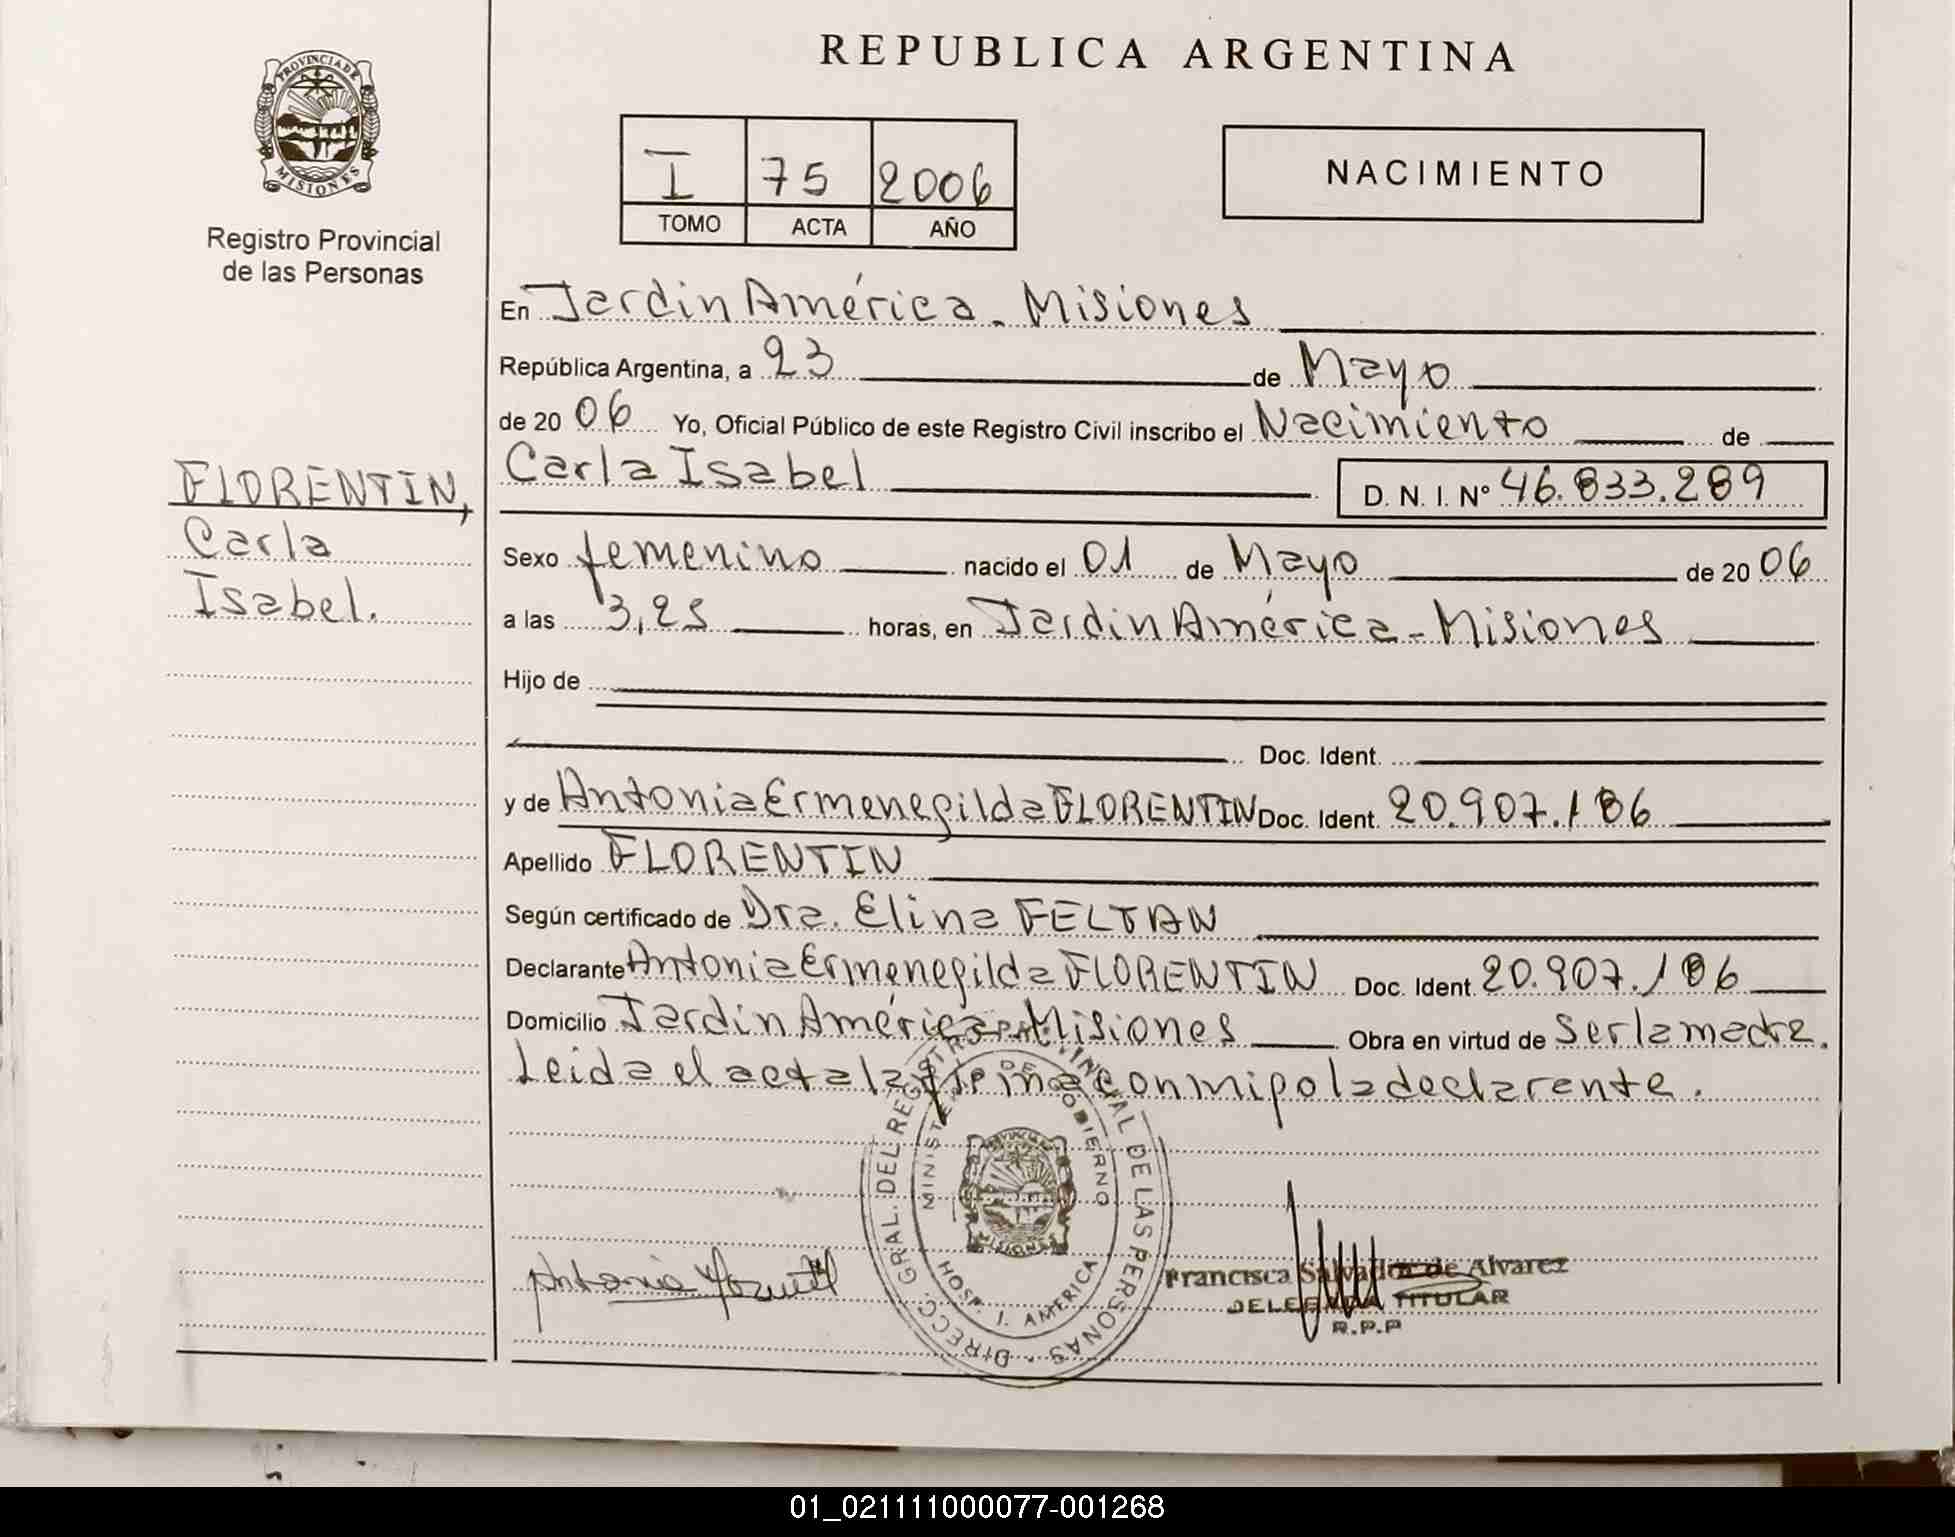 REPUBLICA ARGENTINA
PROVINCIA DE
MISIONES
Registro Provincial
de las Personas
I 75 2006
TOMO ACTA AÑO
NACIMIENTO
En Jardin América - Misiones
República Argentina, a 23 de Mayo
de 2006 Yo, Oficial Público de este Registro Civil inscribo el Nacimiento de
FLORENTIN,
Carla
Isabel.
Carla Isabel D. N. I. Nº 46.833.289
Sexo femenino nacido el 01 de Mayo de 2006
a las 3,25 horas, en Jardin América - Misiones
Hijo de
Doc. Ident.
y de Antonia Ermenegilda FLORENTIN Doc. Ident. 20.907.186
Apellido FLORENTIN
Según certificado de Dra. Elina FELTAN
Declarante Antonia Ermenegilda FLORENTIN Doc. Ident. 20.907.186
Domicilio Jardin América - Misiones Obra en virtud de Ser la madre.
Leida el acta la firma conmigo la declarante.
DIRECC. GRAL. DEL REGISTRO PROVINCIAL DE LAS PERSONAS
MINISTERIO DE GOBIERNO
MISIONES
HOSP. J. AMERICA
Antonia
Francisca Salvador de Alvarez
DELEGADA TITULAR
R.P.P
01_021111000077-001268